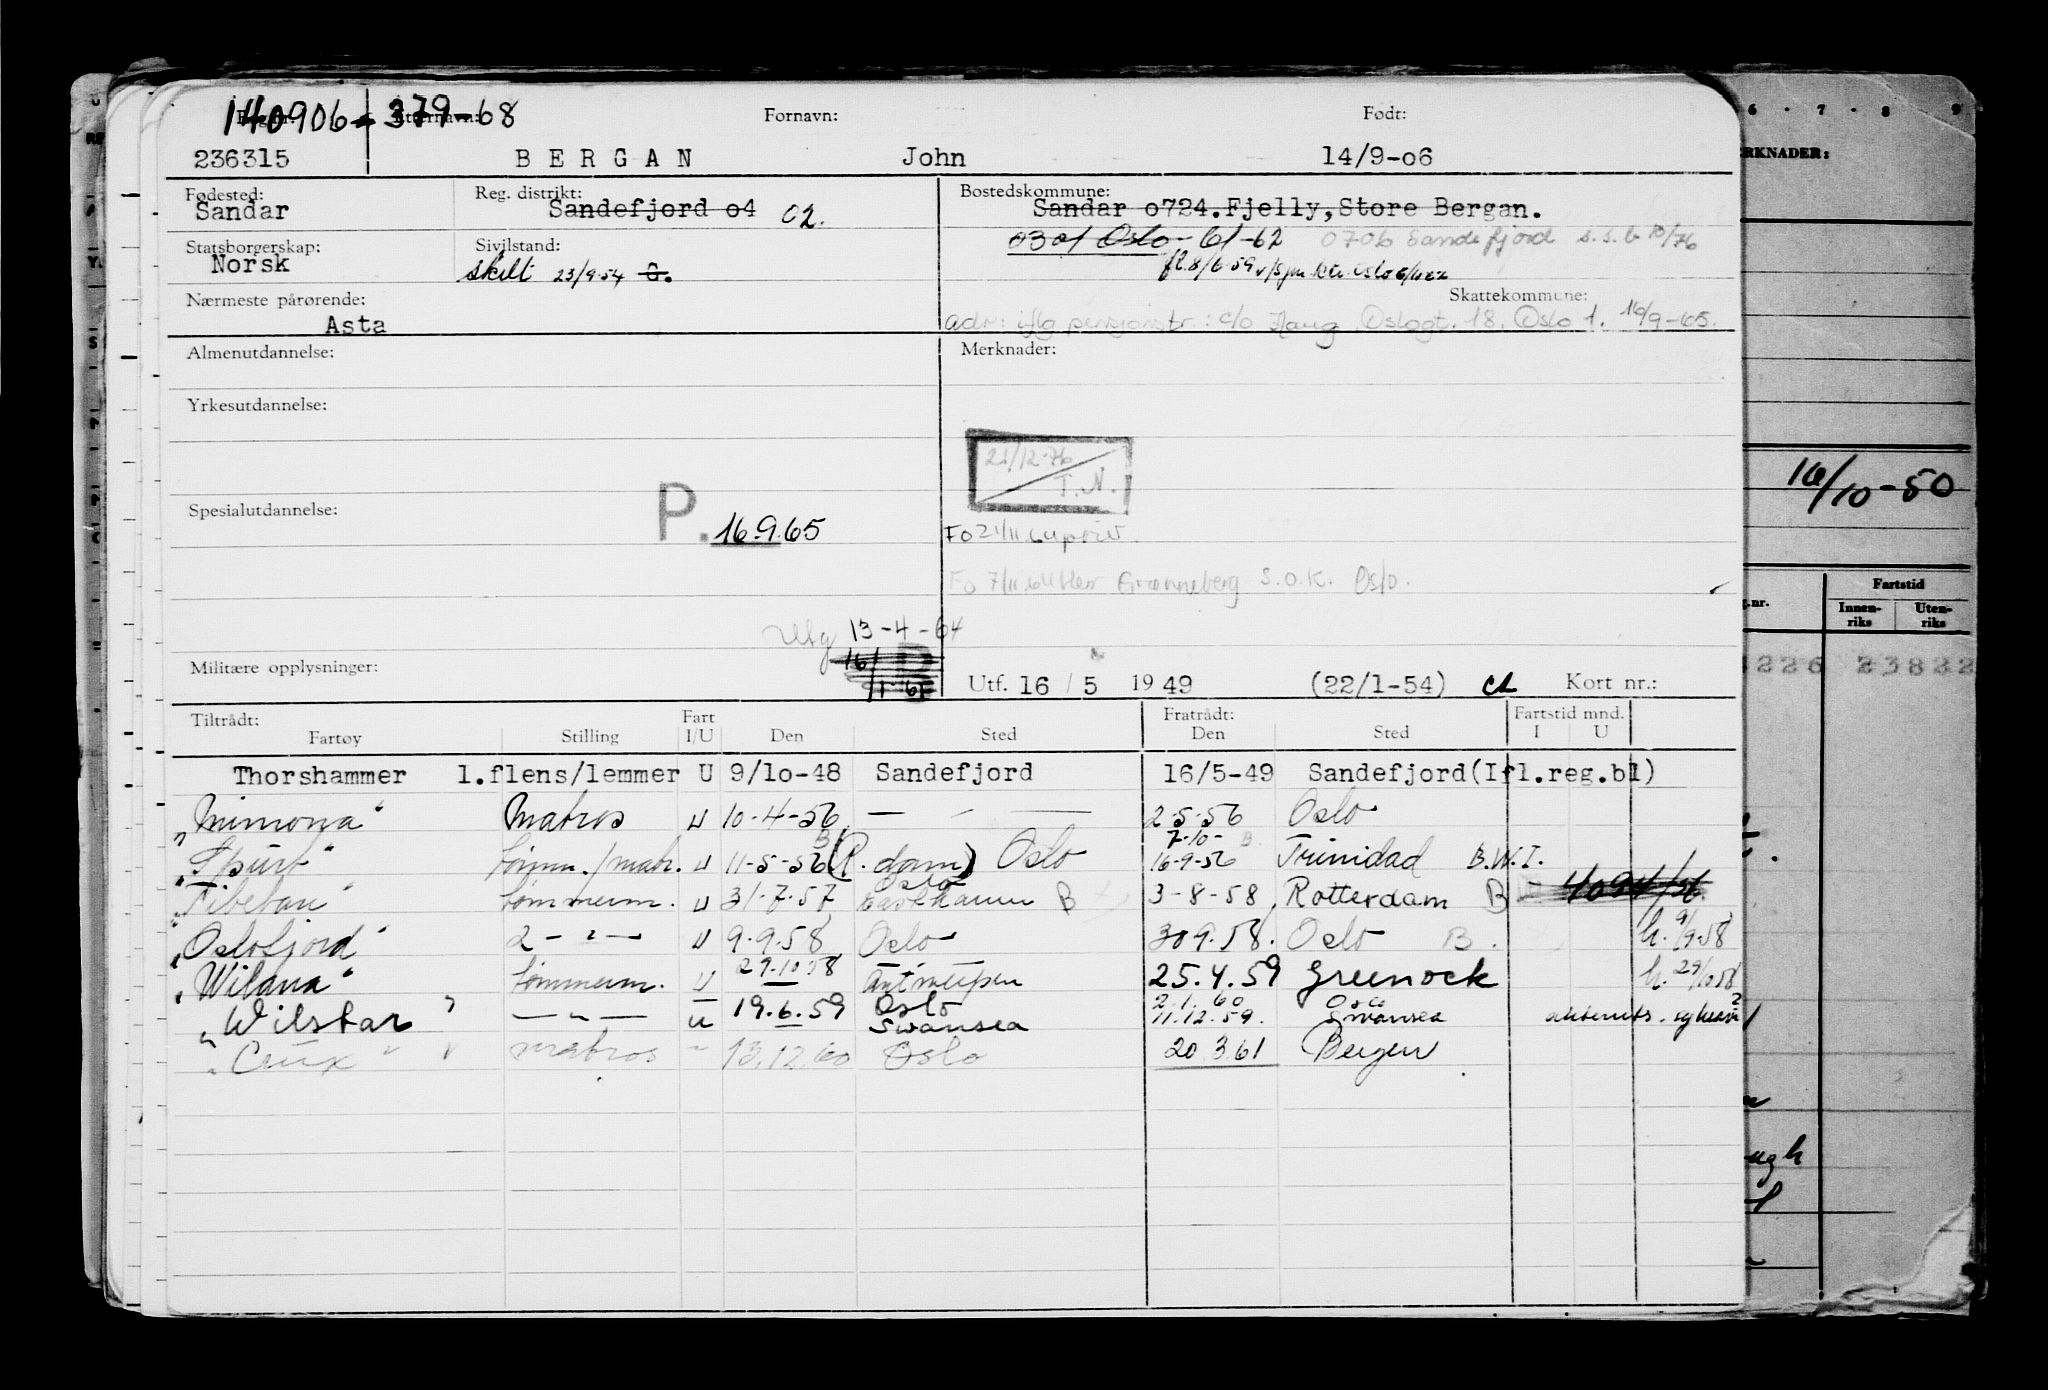 140906 - 379-68
Fornavn: Født:
236315 BERGAN John 14/9-06
Fødested: Reg. distrikt: Bostedskommune:
Sandar Sandefjord o4 02. Sandar o724.Fjelly,Store Bergan.
Statsborgerskap: Sivilstand: 0301 Oslo - 61-62 0706 Sandefjord s.s.b 10/76
Norsk skilt 23/9-54 G.
Nærmeste pårørende: Skattekommune:
Asta adr: iflg pensjonstr: c/o Haug Oslogt. 18. Oslo 1. 16/9-65.
Almenutdannelse: Merknader:
Yrkesutdannelse:
21/12-76
T.N.
Spesialutdannelse: P. 16.9.65
Fo 21/11.64 priv.
Fo 7/11.64 Herr Grønneberg S.O.K. Oslo.
Utg 13-4-64
Militære opplysninger: Utf. 16/5 1949 (22/1-54) Kort nr.:
Tiltrådt: Fart Fratrådt: Fartstid mnd.
Fartøy Stilling I/U Den Sted Den Sted I U
Thorshammer 1.flens/lemmer U 9/1o-48 Sandefjord 16/5-49 Sandefjord(Ifl.reg.bl)
"Mimona" Matros U 10-4-56 — - — 2-5-56 Oslo
7-10-
"Spurt" tømm./matr. U 11-5-56 (R.dam) Oslo 16-9-56 Trinidad B.W.I.
Oslo
"Tibetan" tømmerm. U 31-7-57 B 3-8-58 Rotterdam B - 4094/56
"Oslofjord" 2 - " - U 9.9.58 Oslo 30 9.58. Oslo B. h. 9/9.58
"Wilana" tømmerm. U 29.10 58 Antwerpen 25.4.59 Greenock h. 29/10 58
"Wilstar" — " — U 19.6.59 Oslo 2.1.60 Oslo
Swansea 11.12.59. Swansea
"Crux" matros " 13.12.60 Oslo 20 3.61 Bergen
6 · 7 · 8 · 9
RKNADER:
16/10-50
Fartstid
Innen-riks Uten-riks
226 23822